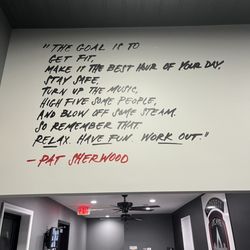 "THE GOAL IS TO
GET FIT,
MAKE IT THE BEST HOUR OF YOUR DAY.
STAY SAFE,
TURN UP THE MUSIC,
HIGH FIVE SOME PEOPLE,
AND BLOW OFF SOME STEAM.
SO REMEMBER THAT.
RELAX. HAVE FUN. WORK OUT"
-PAT SHERWOOD
EXIT